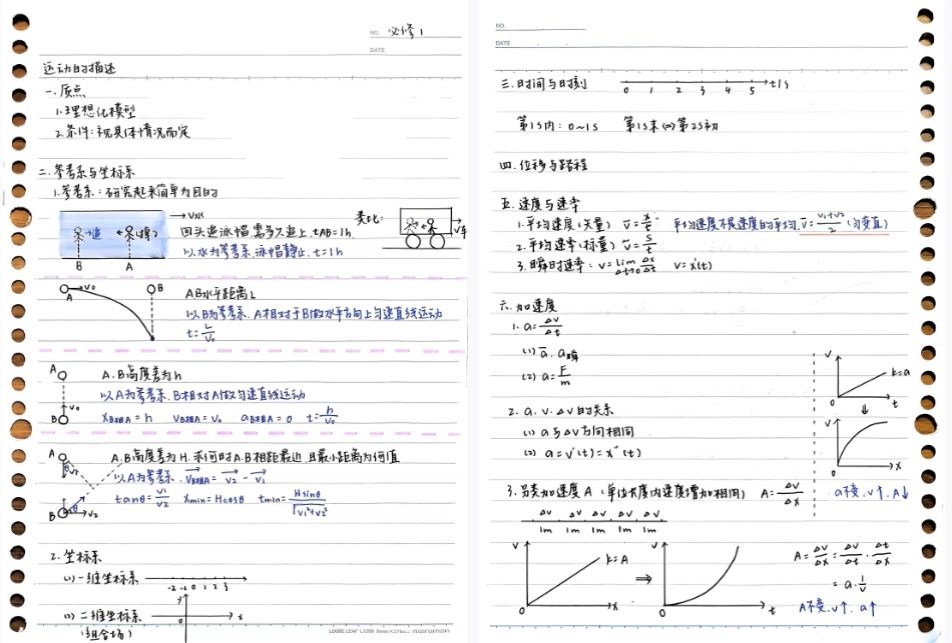 NO. 必修1
DATE
运动的描述
一.质点
1.理想化模型
2.条件:视具体情况而定
二.参考系与坐标系
1.参考系:研究起来简单为目的
→V水
追
B
A
回头追泳帽需多久追上.tAB=1h.
以水为参考系.泳帽静止.t=1h
类比:
V车
A
V₀
B
AB水平距离L
以B为参考系.A相对于B做水平方向上匀速直线运动
t=L/V₀
A
V₀
B
A.B高度差为h
以A为参考系.B相对A做匀速直线运动
XB对A=h VB对A=V₀ aB对A=0 t=h/V₀
A
θ
B
V₂
A.B高度差为H.求何时A.B相距最近.且最小距离为何值
以A为参考系.VB对A=V₂-V₁
tanθ=V₁/V₂ Xmin=Hcosθ tmin=Hsinθ/√V₁²+V₂²
2.坐标系
(1)一维坐标系
-2 -1 0 1 2 3
(2)二维坐标系
y
x
NO.
DATE
三.时间与时刻
0 1 2 3 4 5 t/s
第1s内:0~1s 第1s末⇔第2s初
四.位移与路程
五.速度与速率
1.平均速度(矢量) v̄=x/t 平均速度不是速度的平均.v̄=(V₁+V₂)/2(匀变直)
2.平均速率(标量) v̄=s/t
3.瞬时速率:v=lim Δt→0 Δx/Δt v=x'(t)
六.加速度
1.a=Δv/Δt
(1)ā.a瞬
(2)a=F/m
v
k=a
0
t
⇓
v
0
x
2.a.v.Δv的关系
(1)a与Δv方向相同
(2)a=v'(t)=x''(t)
3.另类加速度A(单位长度内速度增加相同) A=Δv/Δx a不变.v↑.A↓
Δv Δv Δv Δv Δv
1m 1m 1m 1m 1m
v
k=A
0
x
⇒
v
0
t
A=Δv/Δx=Δv/Δt·Δt/Δx
=a·1/v
A不变.v↑.a↑